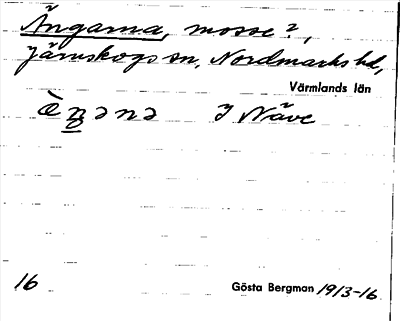 Ängarna, mosse?,
Järnskogs sn, Nordmarks hd,
Värmlands län
J Näve
16
Gösta Bergman 1913-16